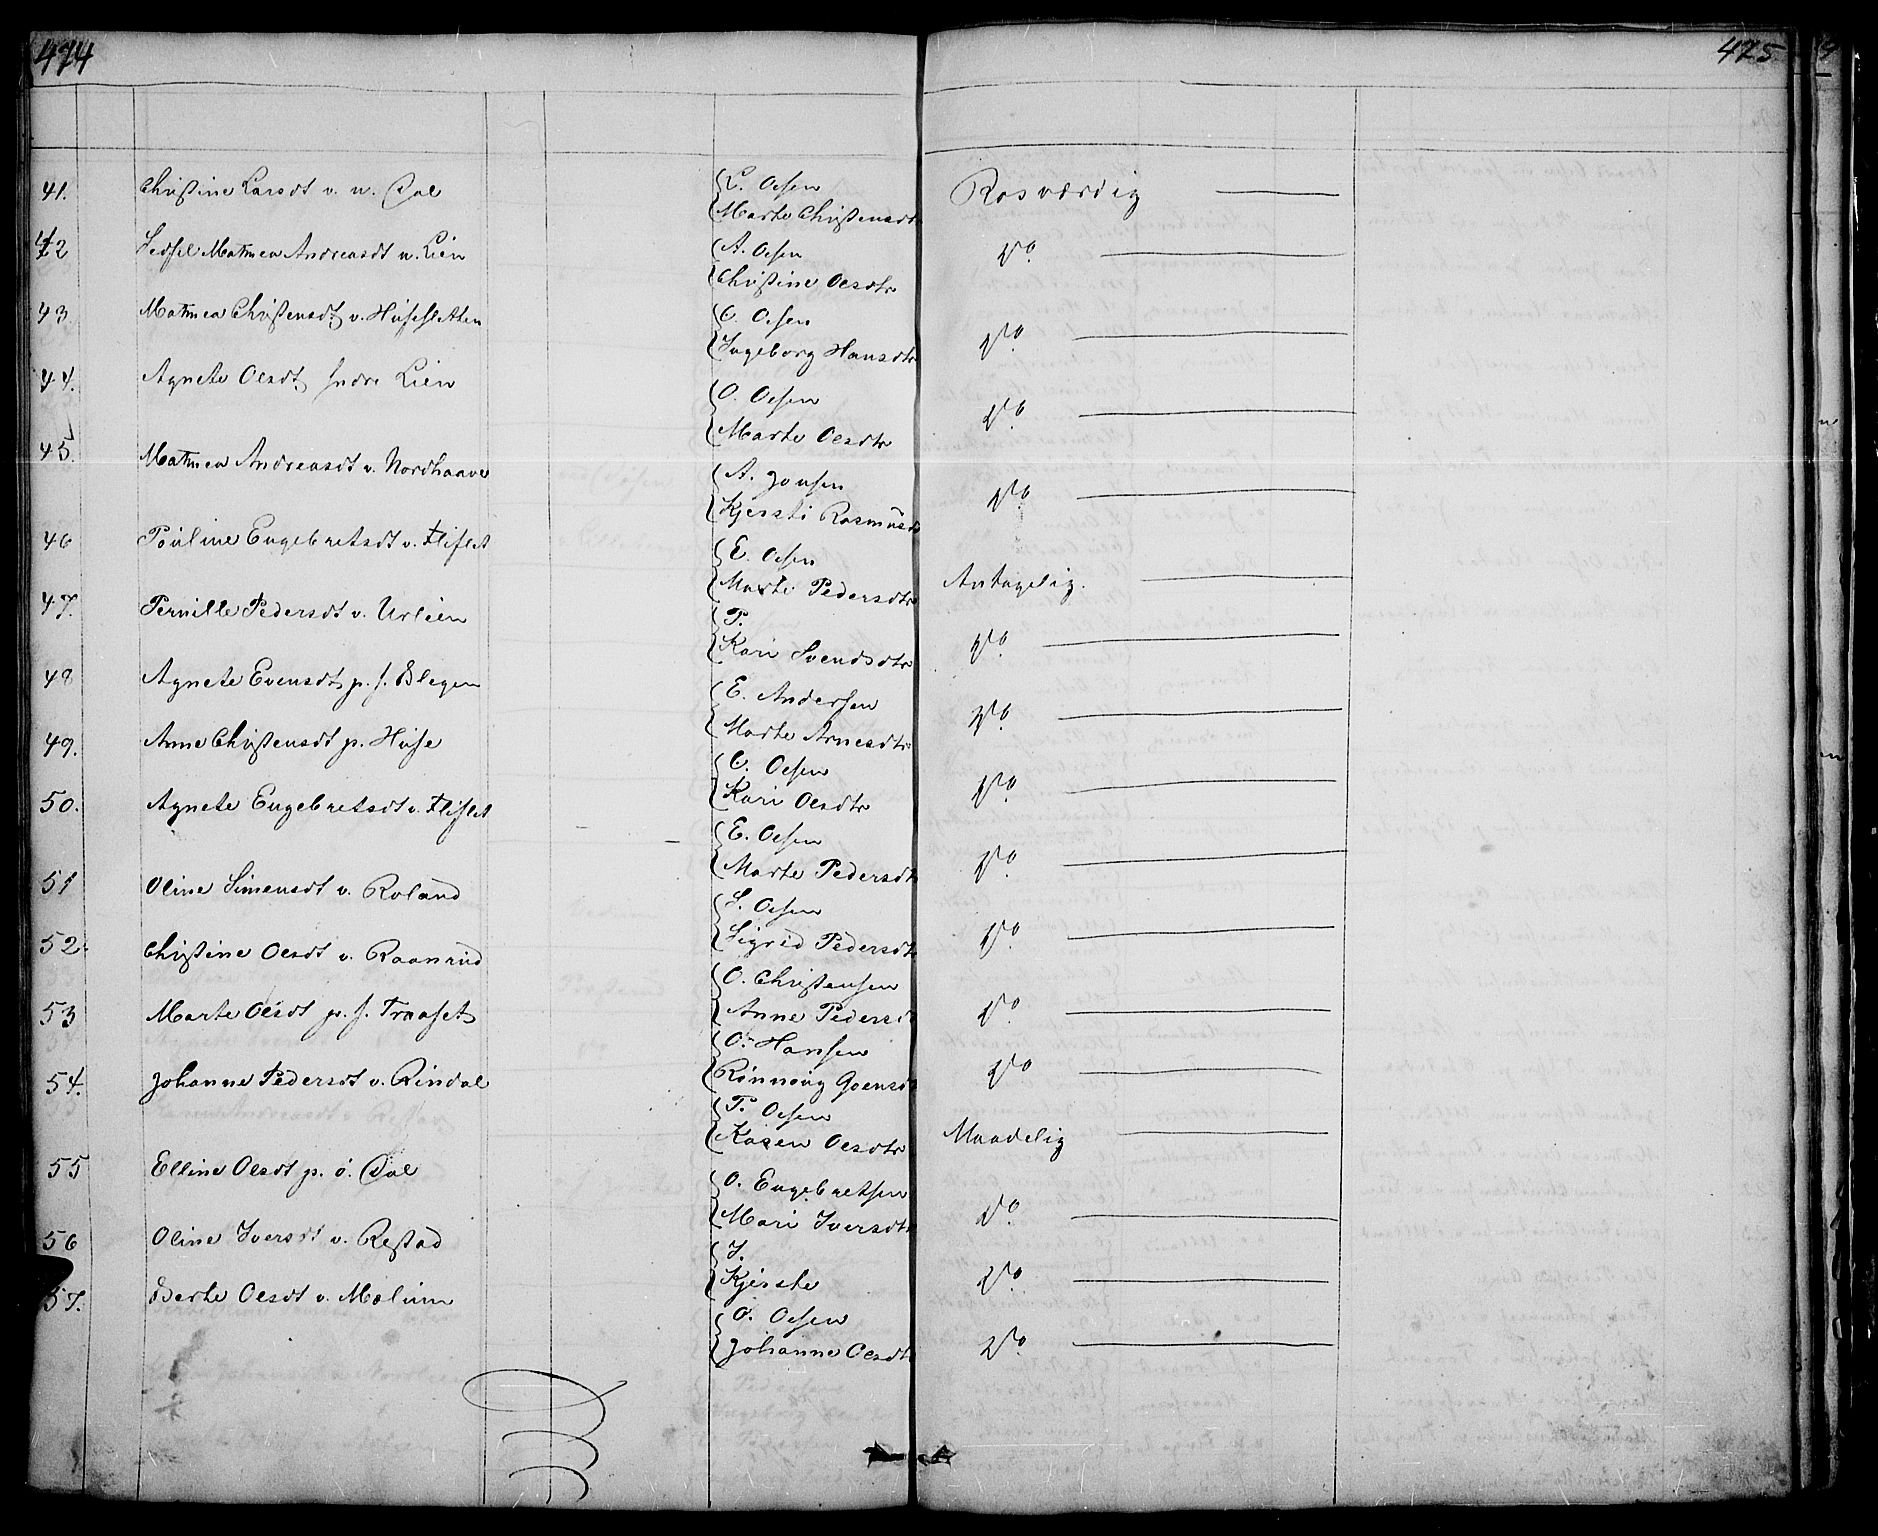 474
475
41. Christine Larsdt v. n. Dal
L. Olsen
Marte Christensdtr
Rosværdig
42 Sidsel Mathea Andreasdt n. Lien
A. Olsen
Christine Olsdtr
Do
43 Mathea Christensdt v. Husesletten
C. Olsen
Ingeborg Hansdtr
Do
44. Agnete Olsdt Indre Lien
O. Olsen
Marte Olsdtr
Do
45. Mathea Andreasdt v. Nordhaave
A. Jonsen
Kjersti Rasmusd
Do
46 Pauline Engebretsdt v. Flislet
E. Olsen
Marte Pedersdtr
Antagelig.
47. Pernille Pedersdt v. Urlien
P.
Kari Svendsdtr
Do
48 Agnete Evensdt p. s. Blegen
E. Andersen
Marte Arnesdtr
Do
49. Anne Christensdt p. Huse
C. Olsen
Kari Olsdtr
Do
50. Agnete Engebretsdt v. Flislet
E. Olsen
Marte Pedersdt
Do
51 Oline Simensdt v. Roland
S. Olsen
Sigrid Pedersdt
Do
52. Christine Olsdt v. Raanrud
O. Christensen
Anne Pedersd
Do
53 Marte Olsdt p. s. Traaset
O. Hansen
Rønnaug Goensd
Do
54. Johanne Pedersdt v. Rindal
P. Olsen
Karen Olsdtr
Maadelig
55 Elline Olsdt p. ö. Dal
O. Engebretsen
Mari Iversdtr
Do
56 Oline Iversdt v. Restad
I.
Kjerste
Do
57. Berte Olsdt v. Mælum
O. Olsen
Johanne Olsdt
Do